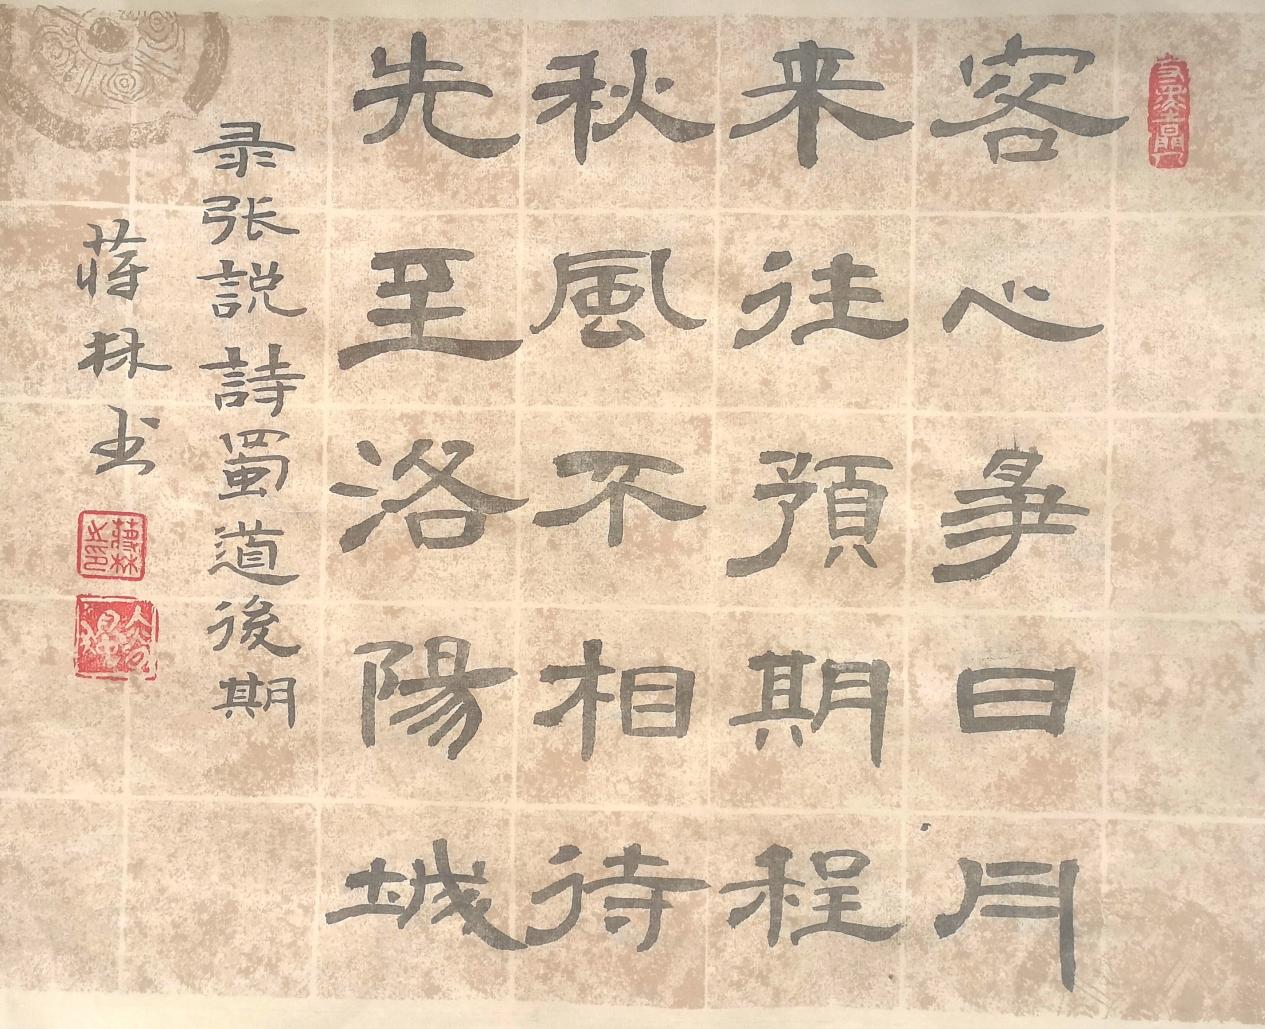 客心爭日月
来往預期程
秋風不相待
先至洛陽城
录张説詩蜀道後期
蒋林书
蒋林之印